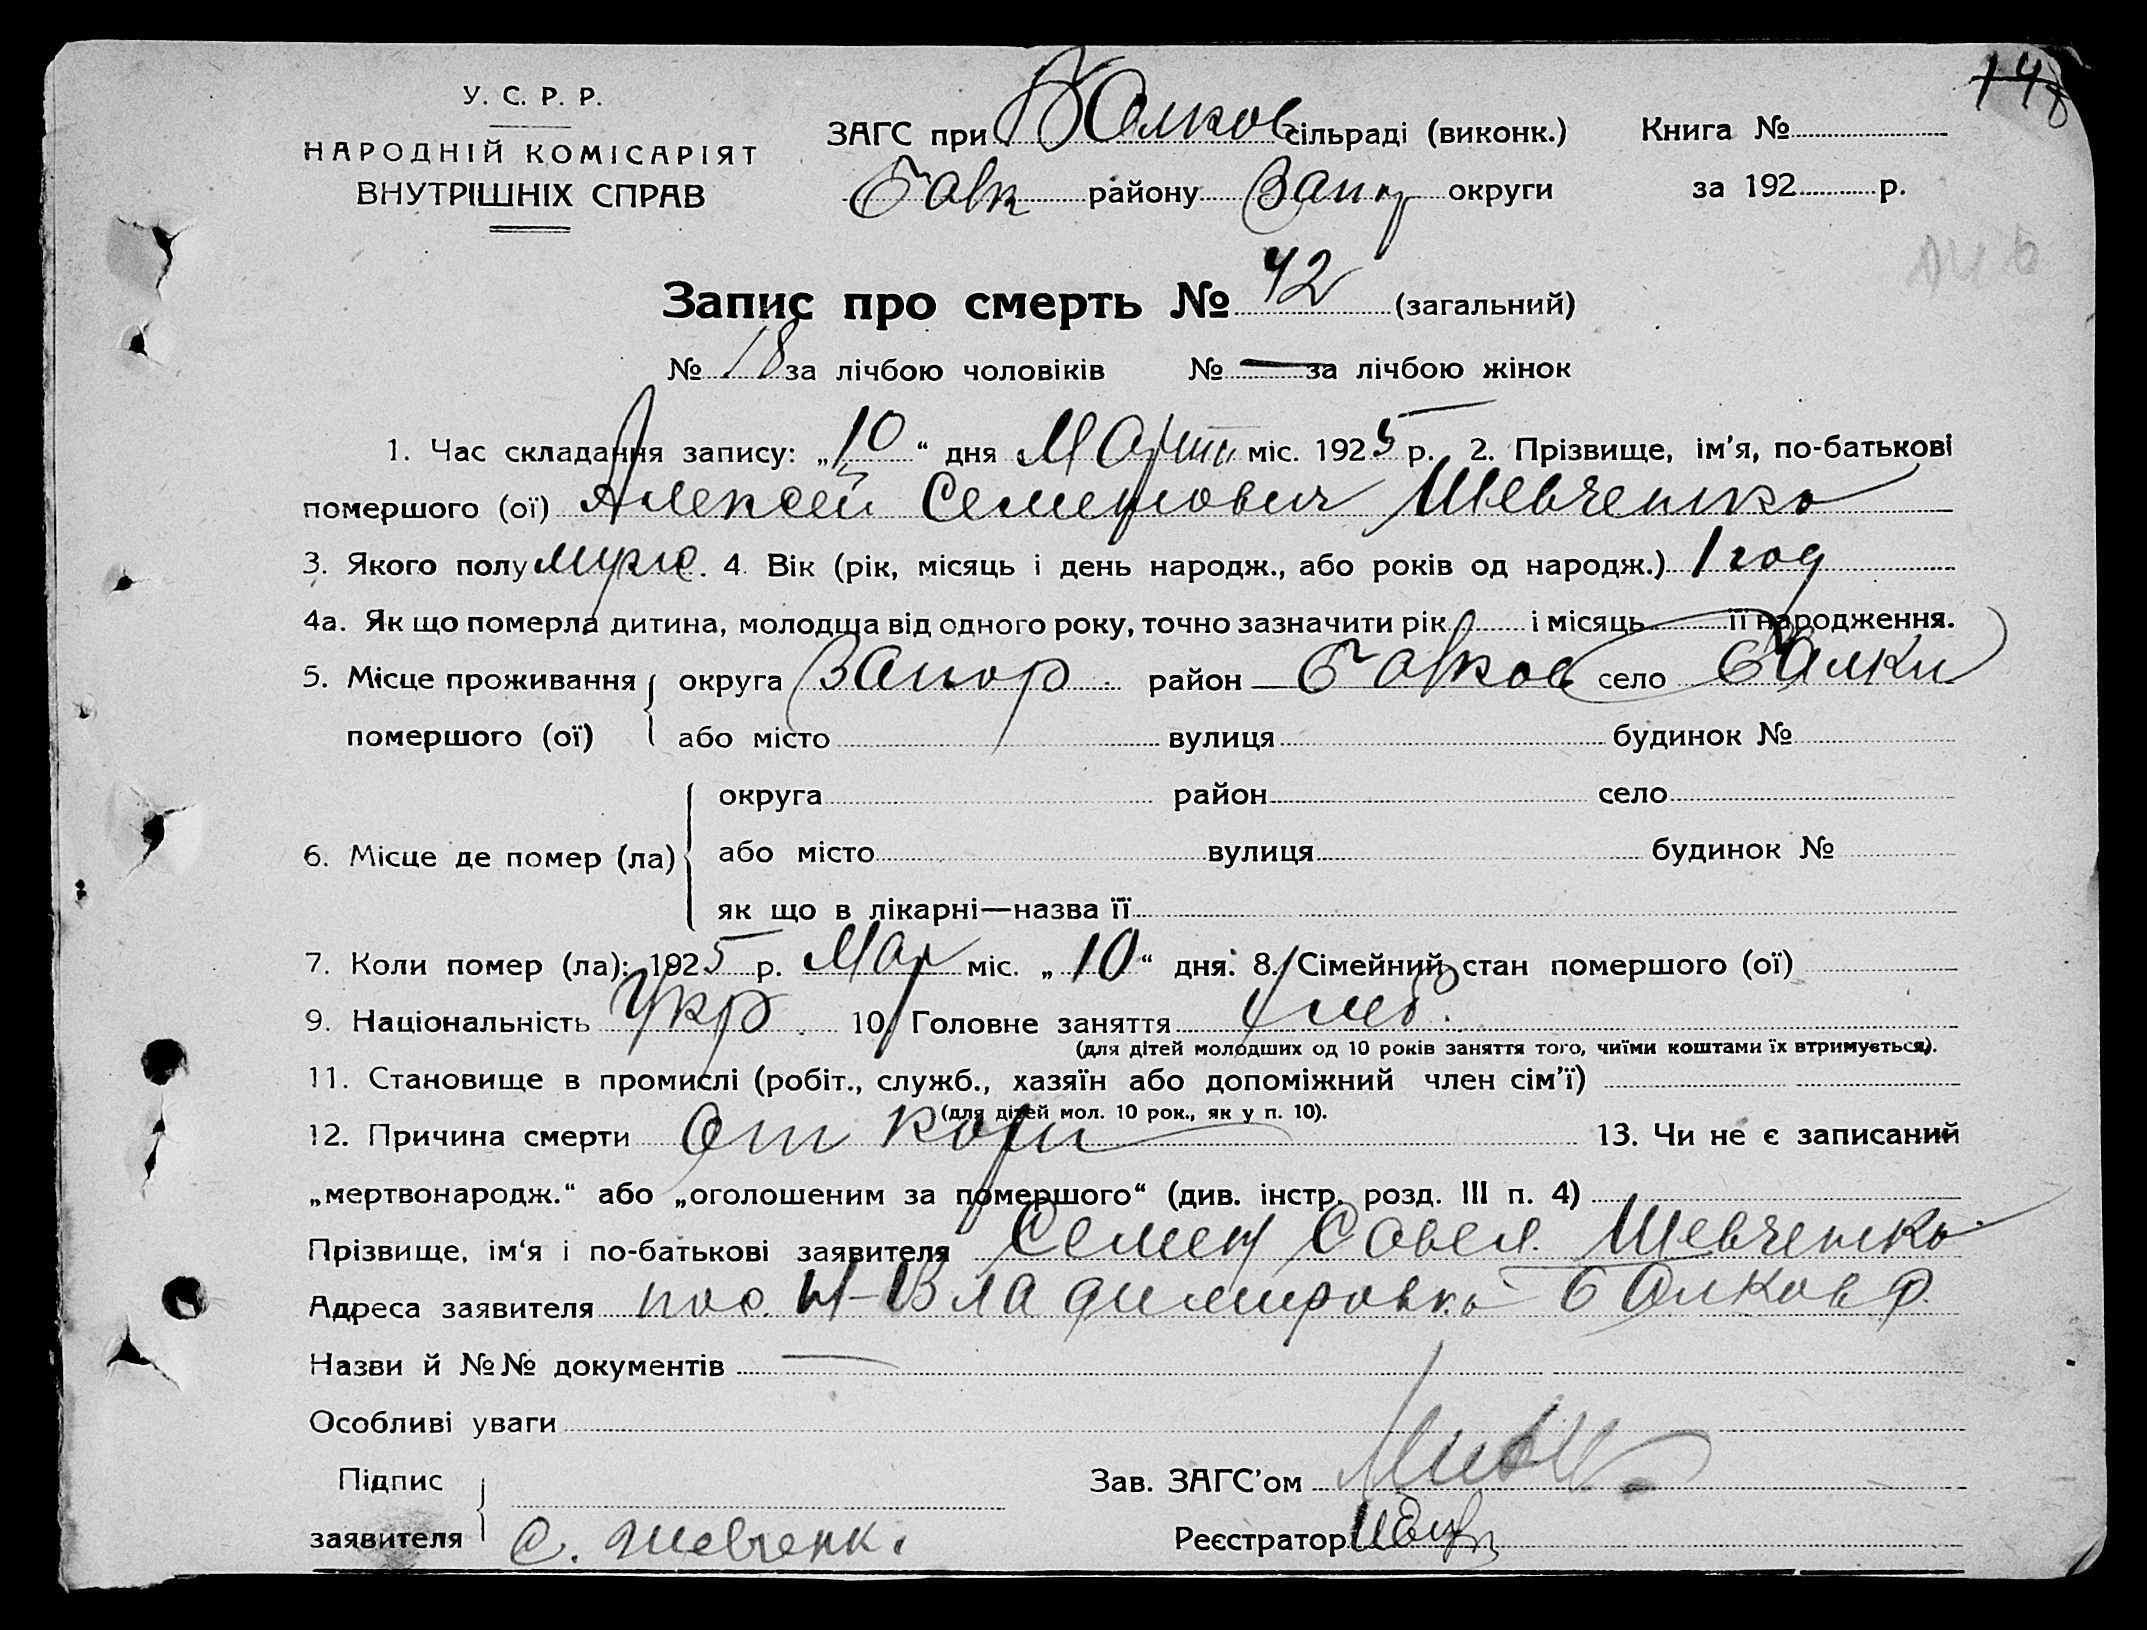 148
У. С. Р. Р.
НАРОДНІЙ КОМІСАРІЯТ
ВНУТРІШНІХ СПРАВ
ЗАГС при Балков сільраді (виконк.) Книга №
Балк району Запор округи за 192 р.
Запис про смерть № 42 (загальний)
№ 18 за лічбою чоловіків № — за лічбою жінок
1. Час складання запису: „10“ дня Марта міс. 1925 р. 2. Прізвище, ім’я, по-батькові
помершого (ої) Алексей Семенович Шевченко
3. Якого полу муж. 4. Вік (рік, місяць і день народж., або років од народж.) 1 год
4а. Як що померла дитина, молодща від одного року, точно зазначити рік і місяць її народження.
5. Місце проживання помершого (ої) округа Запор. район Балков село Балки
або місто вулиця будинок №
6. Місце де помер (ла) округа район село
або місто вулиця будинок №
як що в лікарні—назва її
7. Коли помер (ла): 1925 р. Мар міс. „10“ дня. 8. Сімейний стан помершого (ої)
9. Національність Укр. 10. Головне заняття хлеб.
(для дітей молодших од 10 років заняття того, чиїми коштами їх втримується).
11. Становище в промислі (робіт., служб., хазяїн або допоміжний член сім’ї)
(для дітей мол. 10 рок., як у п. 10).
12. Причина смерти От кори 13. Чи не є записаний
„мертвонародж.“ або „оголошеним за помершого“ (див. інстр. розд. III п. 4)
Прізвище, ім‘я і по-батькові заявителя Семен Савел. Шевченко
Адреса заявителя пос. Н-Владимировка Балков р.
Назви й №№ документів —
Особливі уваги
Підпис заявителя С. Шевченк.
Зав. ЗАГС’ом
Реєстратор